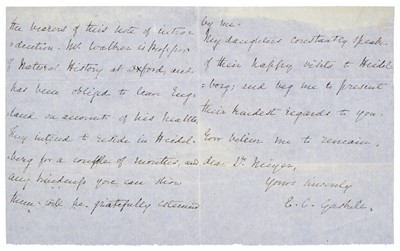 the bearers of this note of intro-
duction. Mr Walker is Professor
of Natural History at Oxford, and
has been obliged to leave Eng-
land on account of his health.
They intend to reside in Heidel-
berg for a couple of months, and
any kindness you can show
them will be gratefully esteemed
by me.
My daughters constantly speak
of their happy visits to Heidel-
berg; and beg me to present
their kindest regards to you.
believe me to remain,
dear Dr. Meyer,
Yours sincerely
E. C. Gaskell.